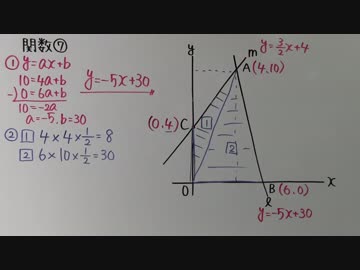 関数⑦
① y=ax+b
10=4a+b
-) 0=6a+b
10=-2a
a=-5, b=30
y=-5x+30
② 1 4×4×1/2=8
2 6×10×1/2=30
y
m
y=3/2x+4
A(4,10)
(0.4)C
1
2
0
B(6.0)
x
l
y=-5x+30